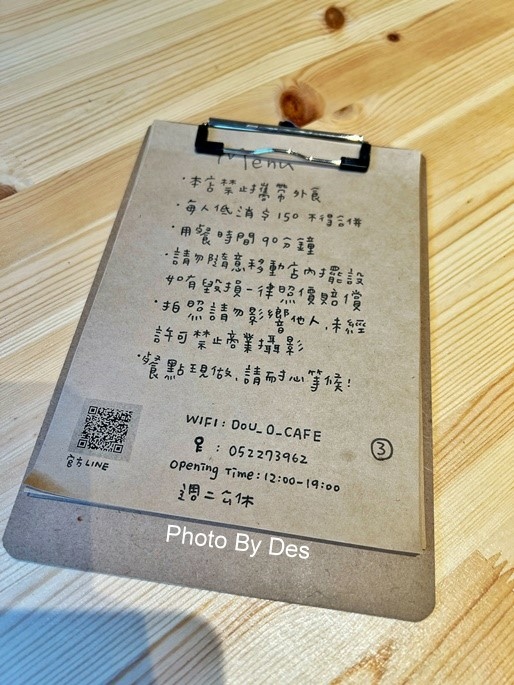 Menu
·本店禁止攜帶外食
·每人低消$150 不得合併
·用餐時間90分鐘
·請勿隨意移動店內擺設
如有毀損一律照價賠償
·拍照請勿影響他人,未經
許可禁止商業攝影
·餐點現做,請耐心等候!
WIFI: DOU_O_CAFE
: 052273962
③
Opening Time:12:00-19:00
官方LINE
週二公休
Photo By Des